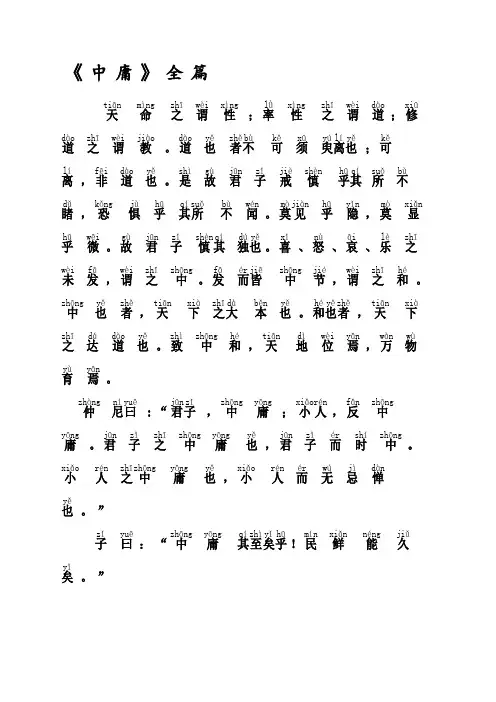 《中庸》全篇
tiān mìng zhī wèi xìng lǜ xìng zhī wèi dào xiū
天命之谓性；率性之谓道；修
dào zhī wèi jiào dào yě zhě bù kě xū yú lí yě kě
道之谓教。道也者不可须臾离也；可
lí fēi dào yě shì gù jūn zǐ jiè shèn hū qí suǒ bù
离，非道也。是故君子戒慎乎其所不
dǔ kǒng jù hū qí suǒ bù wén mò jiàn hū yǐn mò xiǎn
睹，恐惧乎其所不闻。莫见乎隐，莫显
hū wēi gù jūn zǐ shèn qí dú yě xǐ nù āi lè zhī
乎微。故君子慎其独也。喜、怒、哀、乐之
wèi fā wèi zhī zhōng fā ér jiē zhōng jié wèi zhī hé
未发，谓之中。发而皆中节，谓之和。
zhōng yě zhě tiān xià zhī dà běn yě hé yě zhě tiān xià
中也者，天下之大本也。和也者，天下
zhī dá dào yě zhì zhōng hé tiān dì wèi yān wàn wù
之达道也。致中和，天地位焉，万物
yù yān
育焉。
zhòng ní yuē jūn zǐ zhōng yōng xiǎo rén fǎn zhōng
仲尼曰：“君子，中庸；小人，反中
yōng jūn zǐ zhī zhōng yōng yě jūn zǐ ér shí zhōng
庸。君子之中庸也，君子而时中。
xiǎo rén zhī zhōng yōng yě xiǎo rén ér wú jì dàn
小人之中庸也，小人而无忌惮
yě
也。”
zǐ yuē zhōng yōng qí zhì yǐ hū mín xiǎn néng jiǔ
子曰：“中庸其至矣乎！民鲜能久
yǐ
矣。”